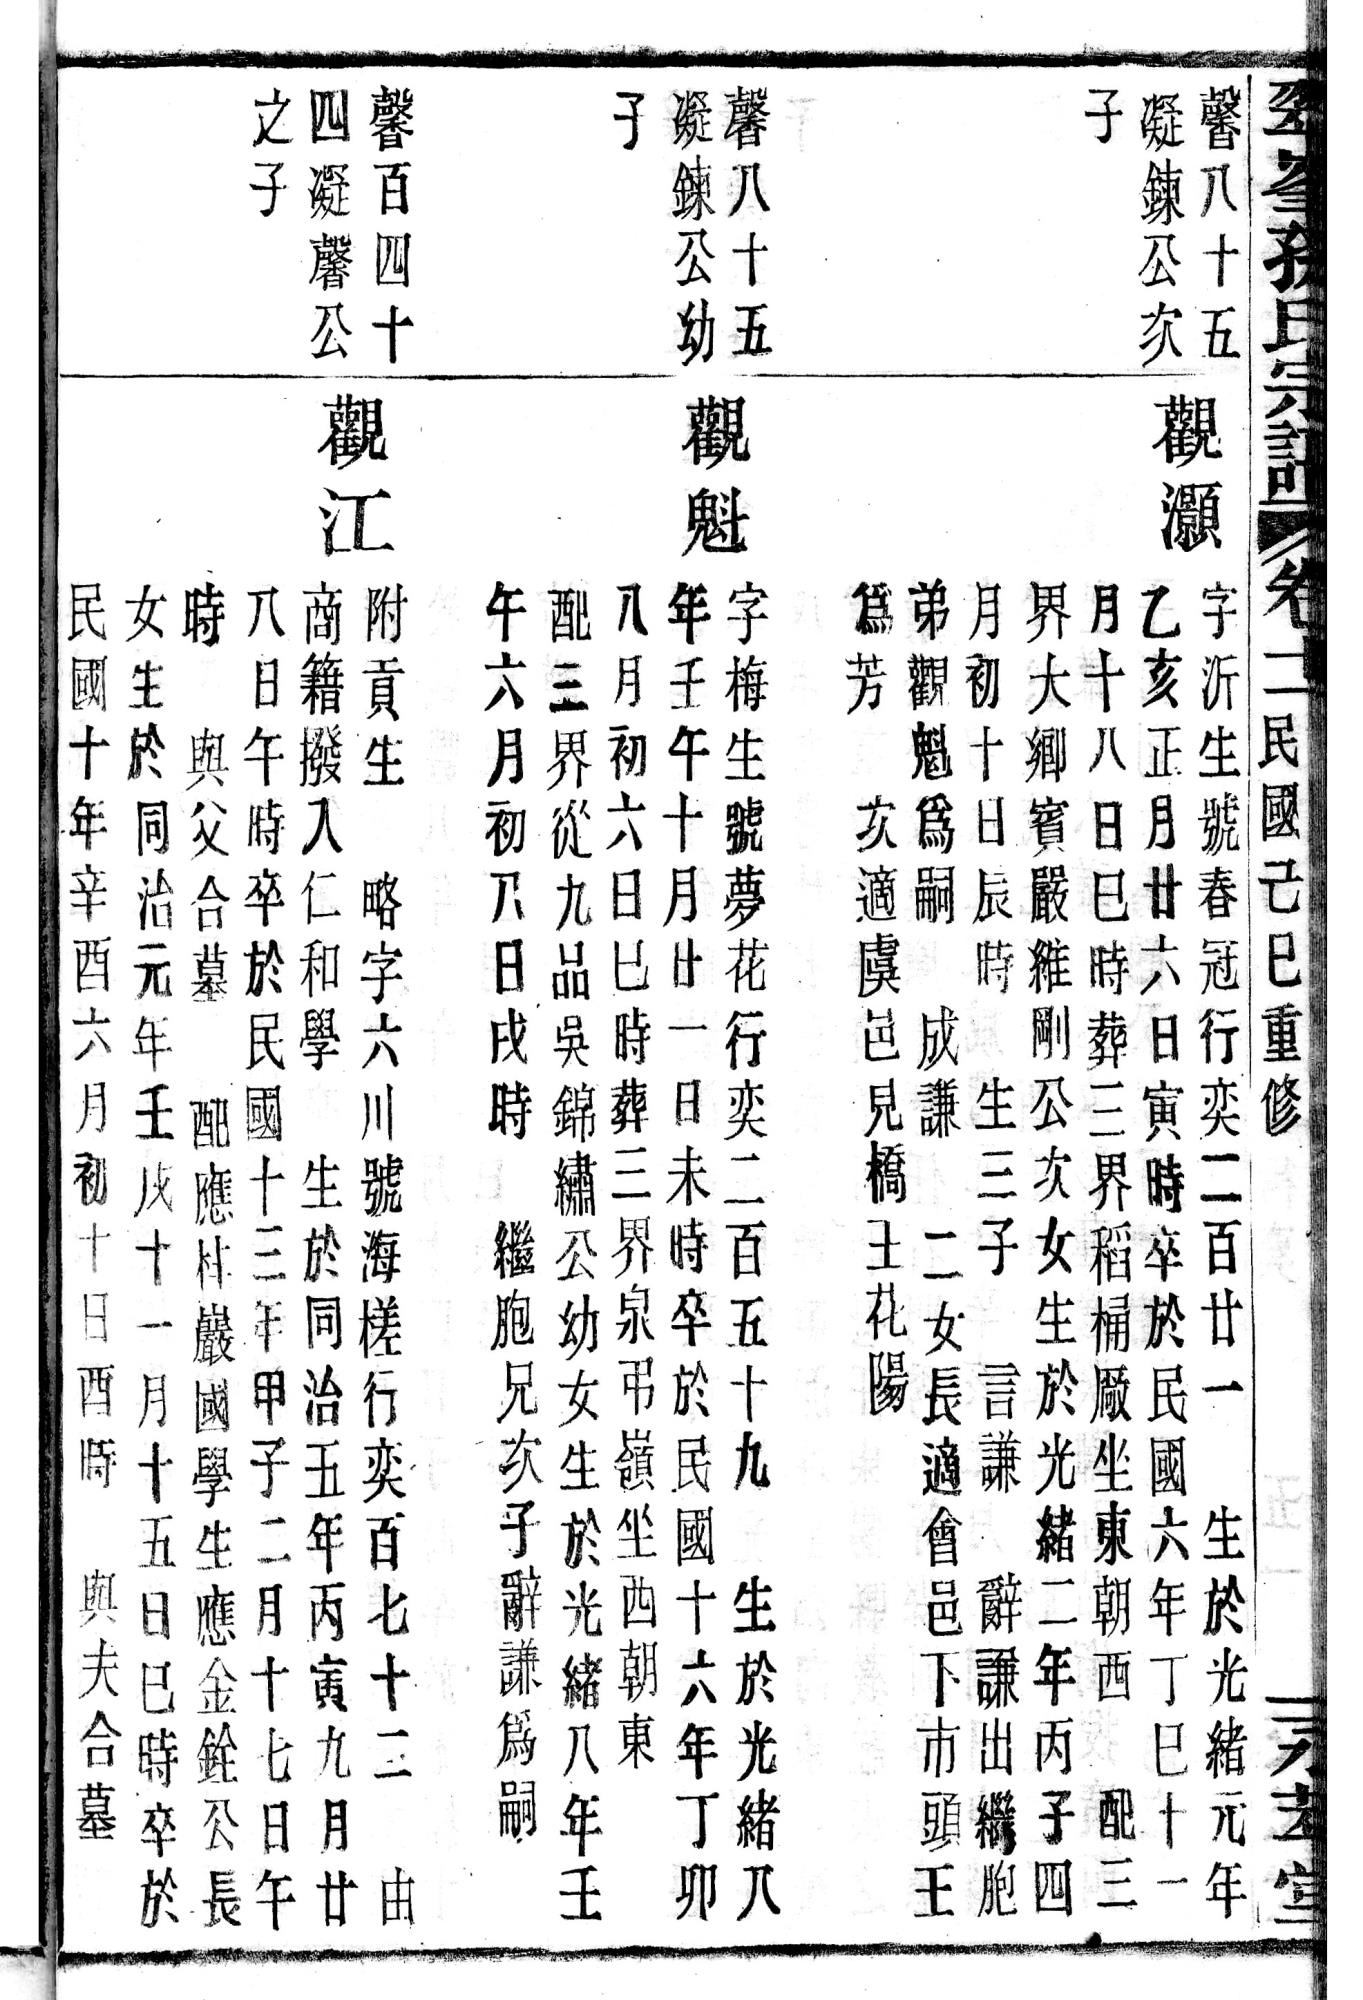 孫氏宗譜 卷十二 民國己巳重修
馨八十五
凝鍊公次
子
觀灝
字沂生號春冠行奕二百廿一 生於光緒元年
乙亥正月廿六日寅時卒於民國六年丁巳十一
月十八日巳時葬三界稻桶厰坐東朝西 配三
界大鄉賓嚴維剛公次女生於光緒二年丙子四
月初十日辰時 生三子 言謙 辭謙出繼胞
弟觀魁爲嗣 成謙 二女長適會邑下市頭王
爲芳 次適虞邑見橋王花陽
馨八十五
凝鍊公幼
子
觀魁
字梅生號夢花行奕二百五十九 生於光緒八
年壬午十月廿一日未時卒於民國十六年丁卯
八月初六日巳時葬三界泉弔嶺坐西朝東
配三界從九品吳錦繡公幼女生於光緒八年壬
午六月初八日戌時 繼胞兄次子辭謙爲嗣
馨百四十
四凝馨公
之子
觀江
附貢生 略字六川號海槎行奕百七十二 由
商籍撥入仁和學 生於同治五年丙寅九月廿
八日午時卒於民國十三年甲子二月十七日午
時 與父合墓 配應柱巖國學生應金銓公長
女生於同治元年壬戌十一月十五日巳時卒於
民國十年辛酉六月初十日酉時 與夫合墓